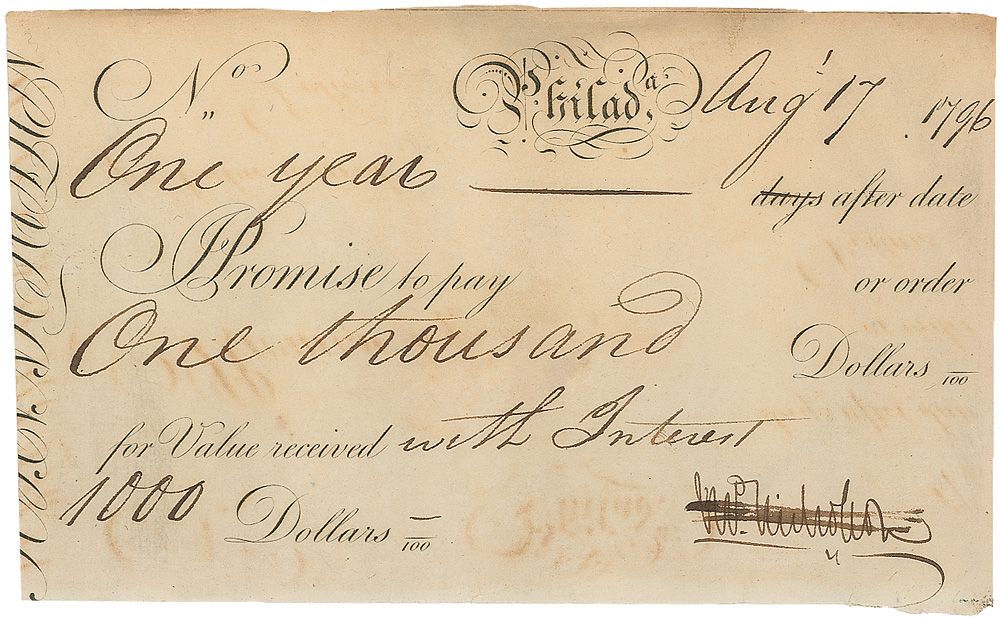 No „ Philada. Augt 17 1796
One year days after date
Promise to pay or order
One thousand Dollars /100
for Value received with Interest
1000 Dollars /100 Jno. Nicholson